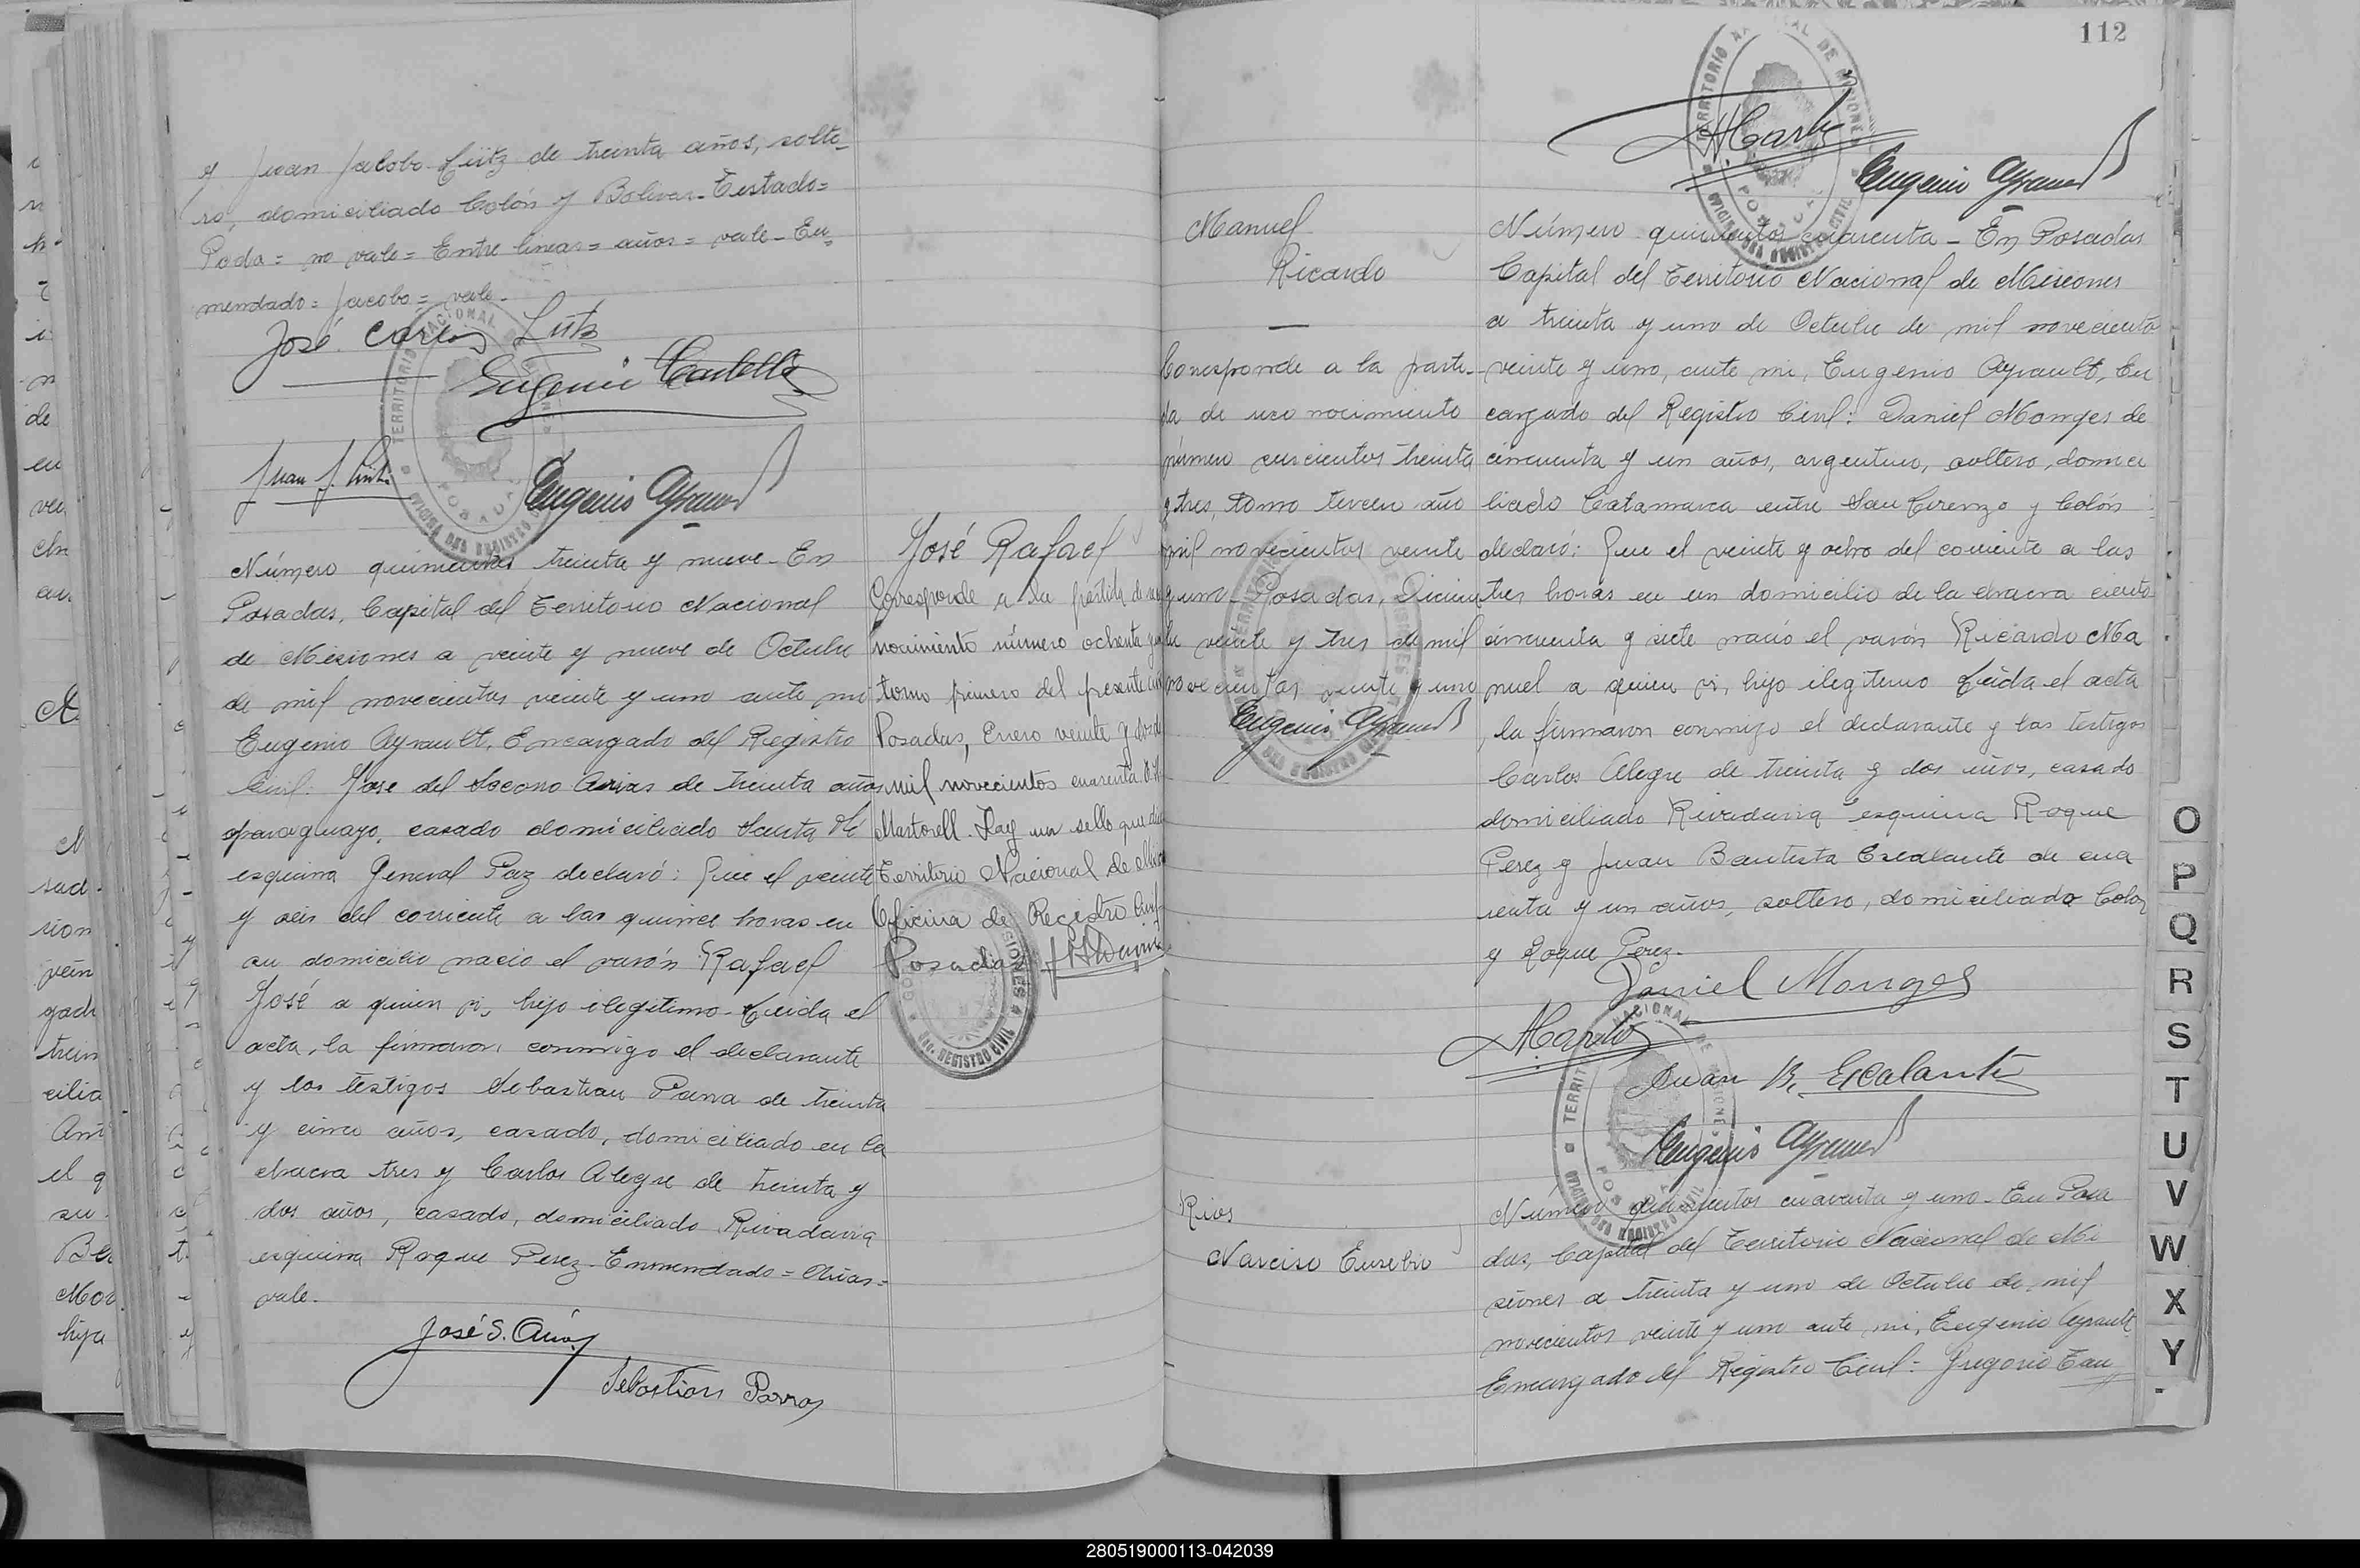 y Juan Jacobo Lütz de treinta años, solte-
ro, domiciliado Colón y Bolivar-Testado=
Poda= no vale= Entre lineas= años= vale- En-
mendado= Jacobo= vale-
José Carlos Lütz
Eugenio
Juan J. Lütz
Eugenio Ayrault
Número quinientos treinta y nueve- En
Posadas, Capital del Territorio Nacional
de Misiones a veinte y nueve de Octubre
de mil novecientos veinte y uno ante mi
Eugenio Ayrault, Encargado del Registro
Civil: Jose del Socorro Arias de treinta años
paraguayo, casado domiciliado Santa Fé
esquina General Paz declaró: Que el veinte
y seis del corriente a las quince horas en
su domicilio nació el varón Rafael
José a quien vi, hijo ilegitimo- Leida el
acta, la firmaron conmigo el declarante
y los testigos Sebastian Parra de treinta
y cinco años, casado, domiciliado en la
chacra tres y Carlos Alegre de treinta y
dos años, casado, domiciliado Rivadavia
esquina Roque Perez- Enmendado= Arias=
vale-
José S. Arias
Sebastian Parra
José Rafael
Corresponde a la partida de
nocimiento número ochenta
tomo primero del presente
Posadas, Enero veinte y dos de
mil novecientos cuarenta.
Martorell- Hay un sello que dice
Territorio Nacional de
Oficina de Registro Civil
Posadas
GOB
SIONES
OFIC. REGISTRO CIVIL
112
TERRITORIO NACIONAL DE MISIONES
POSADAS
OFICINA DEL REGISTRO CIVIL
Eugenio Ayrault
Manuel
Ricardo
Corresponde a la parti-
da de reconocimiento
número seiscientos treinta
y tres, tomo tercero año
mil novecientos veinte
y uno- Posadas, Diciem
bre veinte y tres de mil
novecientos veinte y uno
Eugenio Ayrault
Número quinientos cuarenta- En Posadas
Capital del Territorio Nacional de Misiones
a treinta y uno de Octubre de mil novecientos
veinte y uno, ante mi, Eugenio Ayrault, En
cargado del Registro Civil: Daniel Monges de
cincuenta y un años, argentino, soltero, domici
liado Catamarca entre San Lorenzo y Colón
declaró: Que el veinte y ocho del corriente a las
tres horas en un domicilio de la chacra ciento
cincuenta y siete nació el varón Ricardo Ma
nuel a quien vi, hijo ilegitimo Leida el acta
, la firmaron conmigo el declarante y los testigos
Carlos Alegre de treinta y dos años, casado
domiciliado Rivadavia esquina Roque
Perez y Juan Bautista Escalante de cua
renta y un años, soltero, domiciliado Colon
y Roque Perez-
Daniel Monges
Juan B. Escalante
Eugenio Ayrault
Rios
Narciso Eusebio
Número quinientos cuarenta y uno- En Posa
das, Capital del Territorio Nacional de Mi
siones a treinta y uno de Octubre de mil
novecientos veinte y uno ante mi, Eugenio Ayrault
Encargado del Registro Civil: Gregorio
O
P
Q
R
S
T
U
V
W
X
Y
280519000113-042039